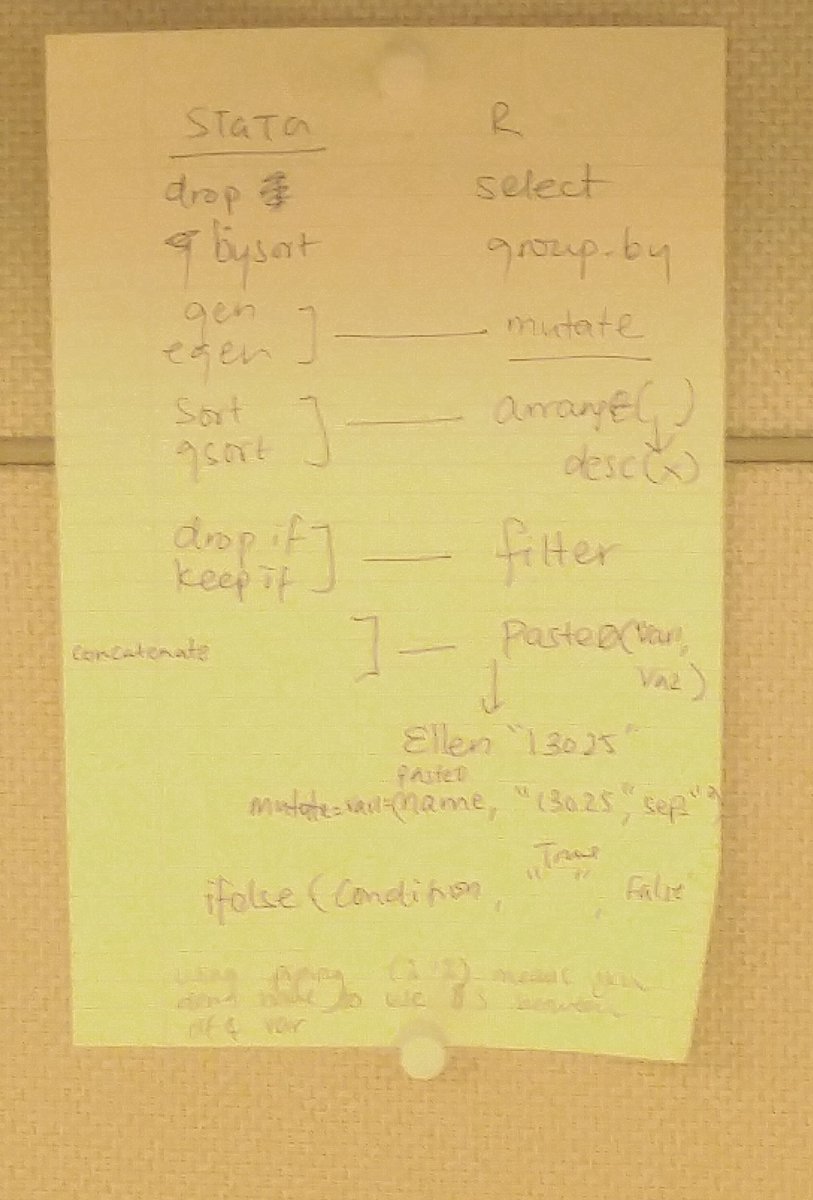 Stata R
drop select
bysort group-by
gen
egen mutate
sort arrange( , )
gsort desc(x)
drop if
keep if filter
concatenate paste0(var1,
var2)
Ellen "13025"
paste0
mutate=var1=(name, "13025", sep=" ")
ifelse (Condition, "True", False"
using piping ( ) means you
dont have to use $s between
df & var